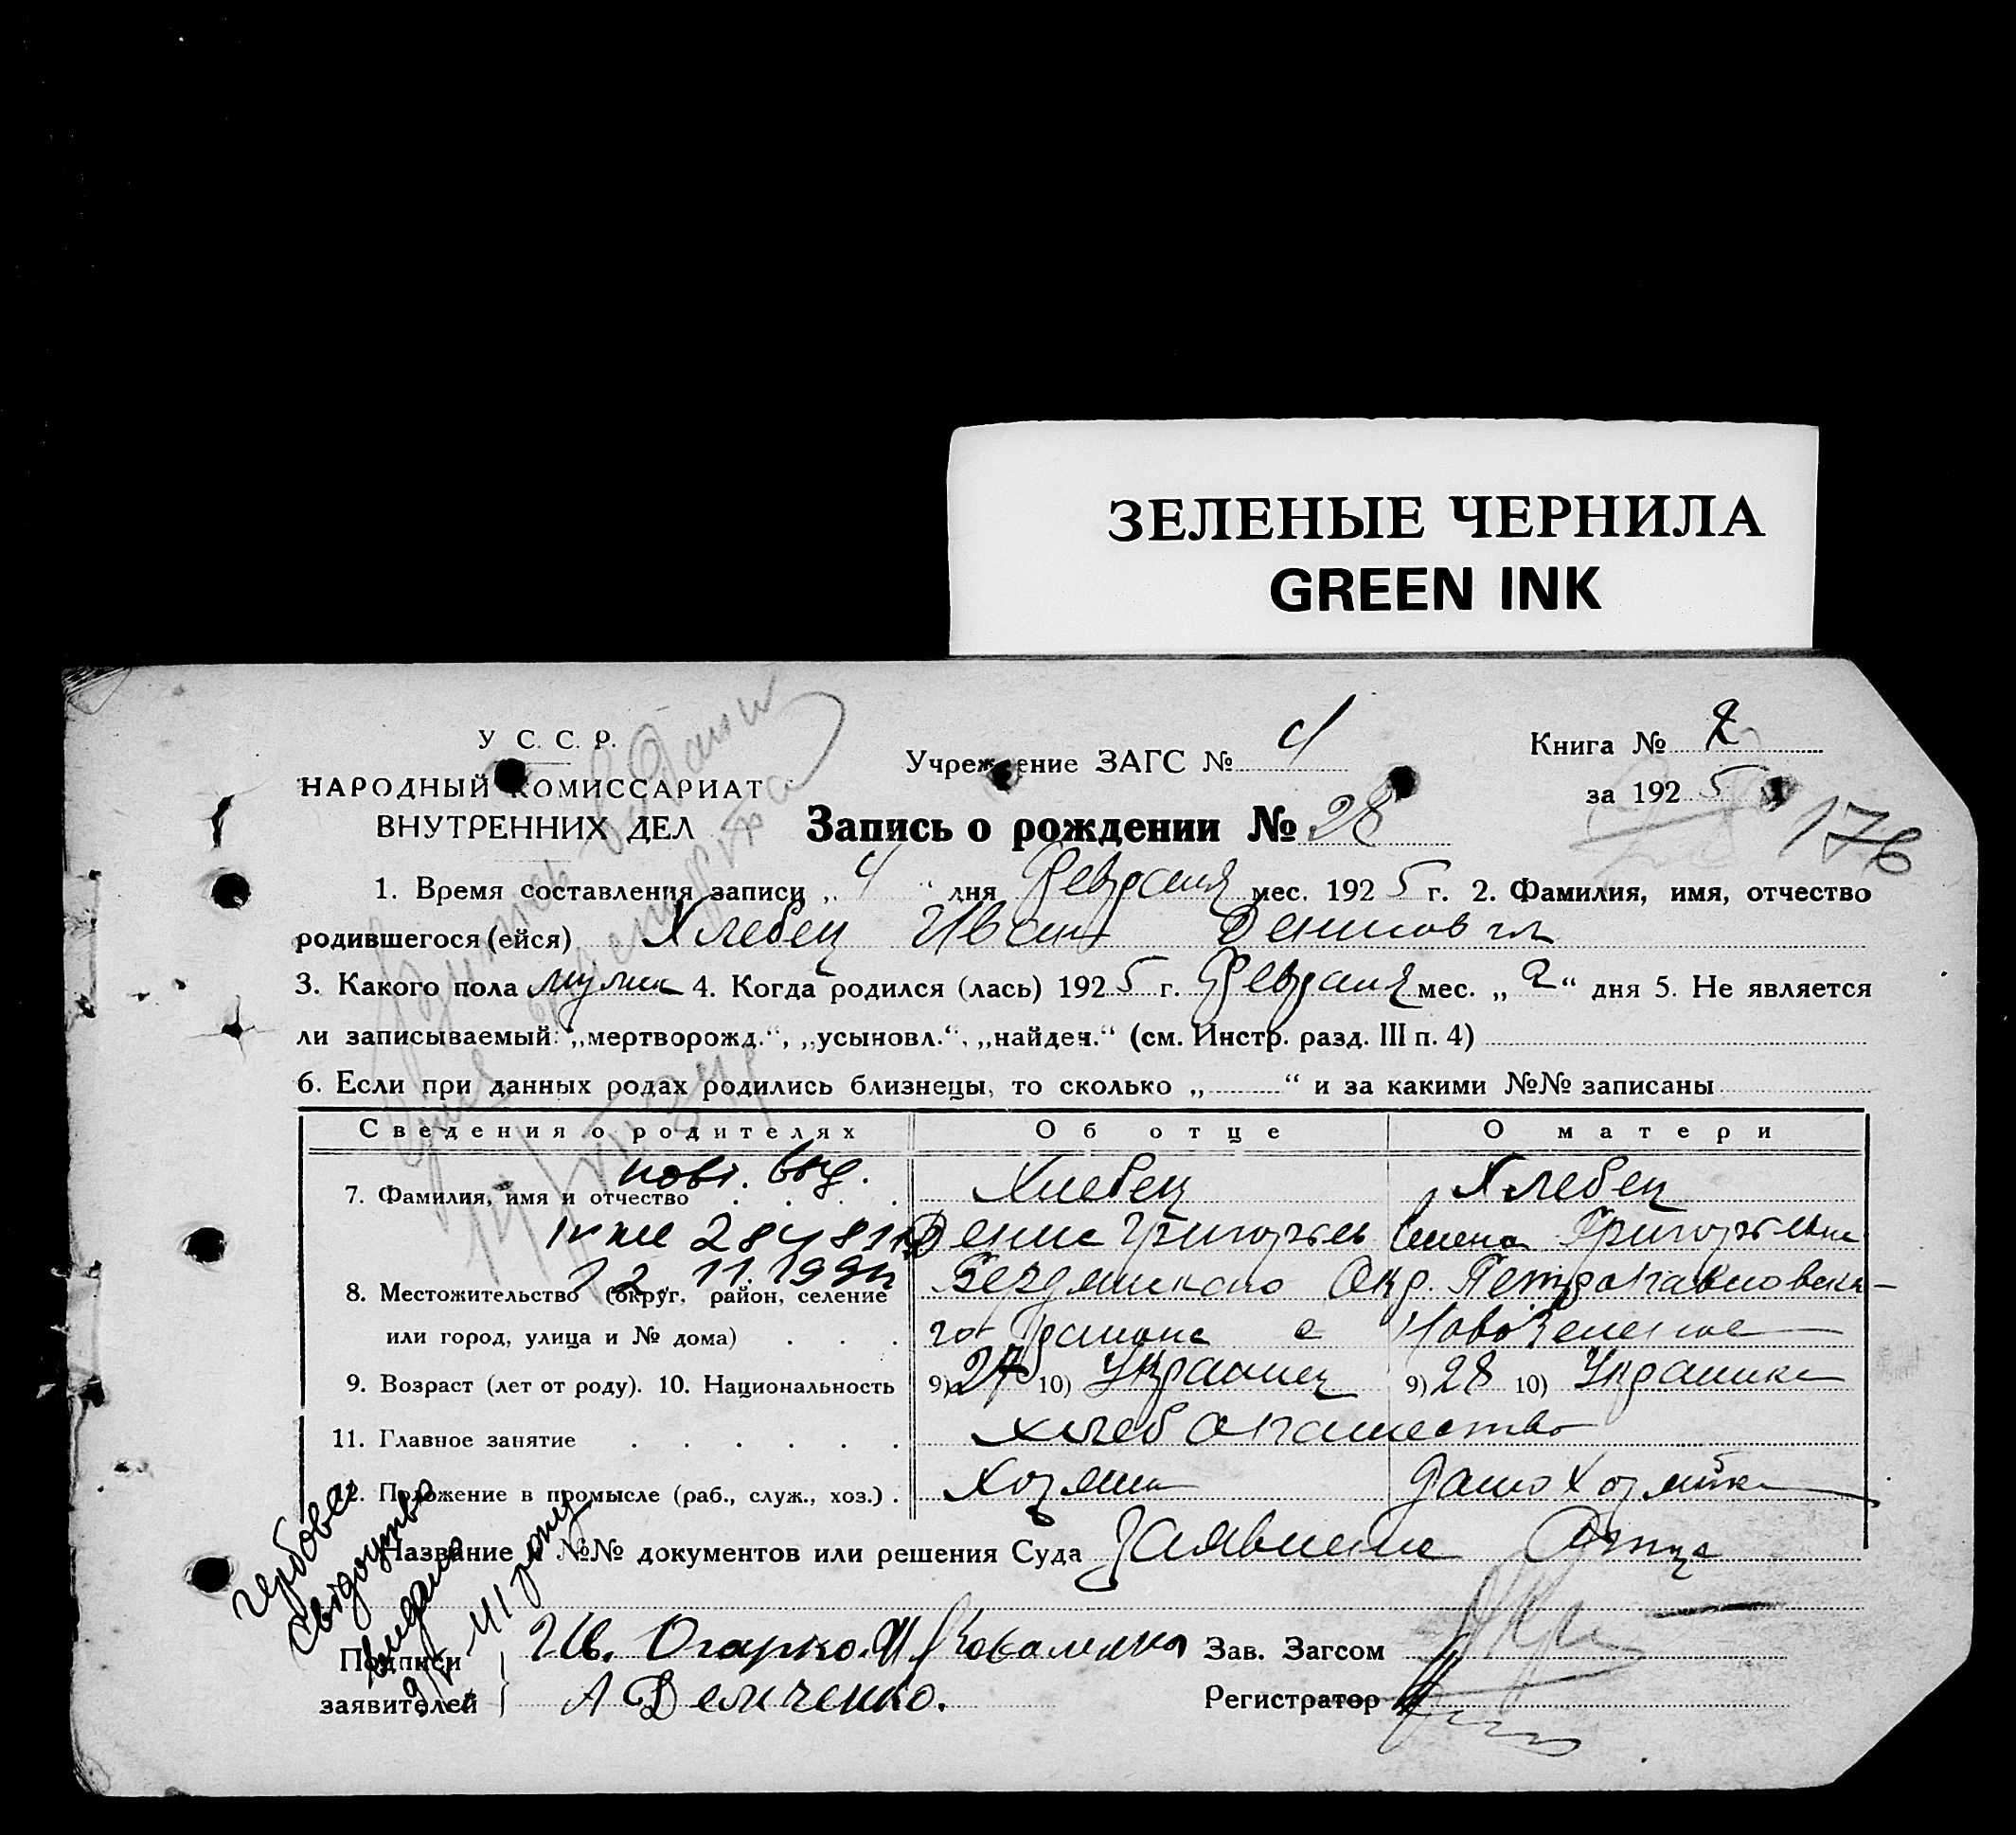 ЗЕЛЕНЫЕ ЧЕРНИЛА
GREEN INK
У С. С. Р.
НАРОДНЫЙ КОМИССАРИАТ
ВНУТРЕННИХ ДЕЛ
Учреждение ЗАГС № 4
Книга № 2
за 1925
Запись о рождении № 28
176
1. Время составления записи „ 4 “ дня Февраля мес. 1925 г. 2. Фамилия, имя, отчество
родившегося (ейся) Хлебец Иван Денисович
3. Какого пола мужск 4. Когда родился (лась) 1925 г. Февраля мес. „ 2 “ дня 5. Не является
ли записываемый: „мертворожд.“, „усыновл.“, „найден.“ (см. Инстр. разд. III п. 4)
6. Если при данных родах родились близнецы, то сколько „ “ и за какими №№ записаны
Сведения о родителях Об отце О матери
повт. выд.
7. Фамилия, имя и отчество . . . . Хлебец Хлебец
284811 Денис Григорьев Елена Григорьевна
12.11.1994
8. Местожительство (округ, район, селение Бердянского Окр. Петропавловска-
или город, улица и № дома) . . . го Района с
9. Возраст (лет от роду). 10. Национальность 9) 27 10) Украинец 9) 28 10) Украинка
11. Главное занятие . . . . . . хлебопашество
12. Положение в промысле (раб., служ., хоз.) . Хозяин Домохозяйка
Название и №№ документов или решения Суда Заявление Отца
Гербове
свідоцтво
видано
9/V 41 року
Подписи
заявителей
Ив. Огарко. Коваленко
А Демченко.
Зав. Загсом
Регистратор